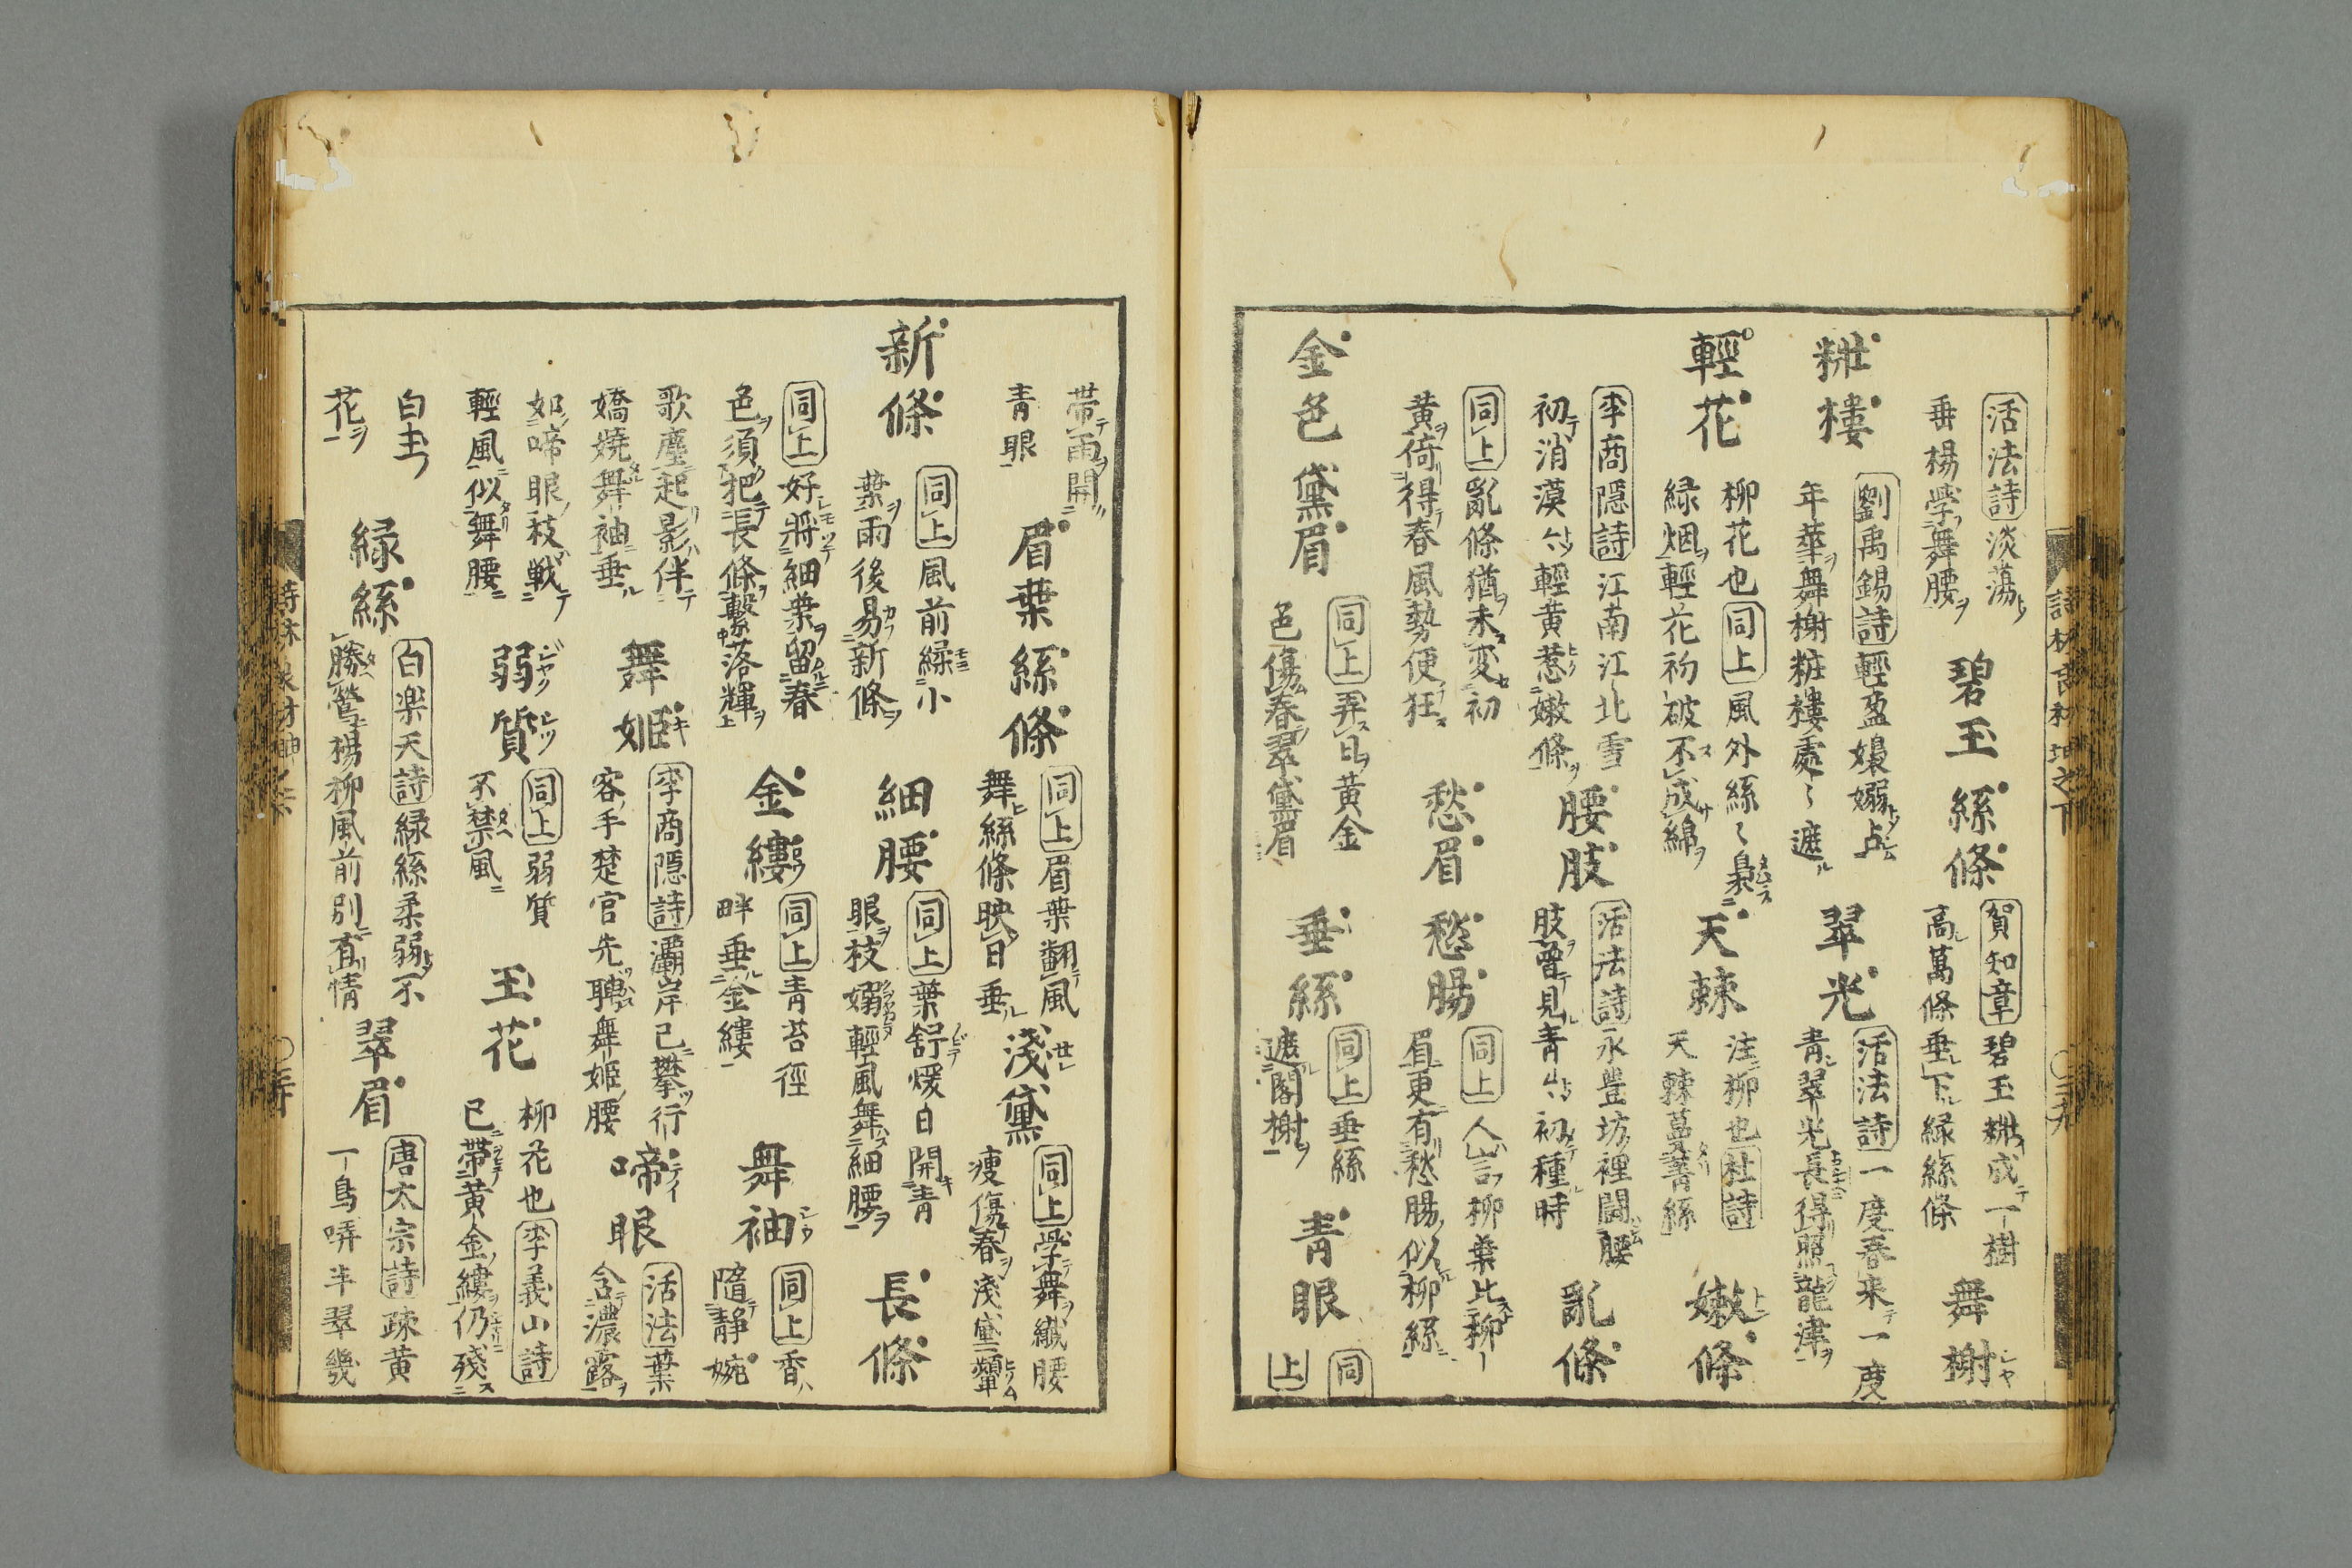 活法詩 淡蕩
垂楊学舞腰
碧玉絲條
賀知章 碧玉粧成一樹
高萬條垂下緑絲條
舞榭
粧樓
劉禹錫詩 輕盈嬝嫋占
年華舞榭粧樓處〻遮
翠光
活法詩 一度春来一度
青翠光長得照龍津
輕花
柳花也 同上 風外絲〻
緑烟輕花初破不成綿
天棘
注柳也 杜詩
天棘蔓青絲
嫩條
李商隠詩 江南江北雪
初消漠〻輕黄惹嫩條
腰肢
活法詩 永豊坊裡闘腰
肢曽見青〻初種時
亂條
同上 亂條猶未変初
黄倚得春風勢便狂
愁眉
愁腸
同上 人言柳葉比柳
眉更有愁腸似柳絲
金色黛眉
同上 弄日黄金
色傷春翠黛眉
垂絲
同上 垂絲
遮閣榭
青眼
同
上
帯雨開
青眼
眉葉絲條
同上 眉葉翻風
舞絲條映日垂
淺黛
同上 学舞纎腰
痩傷春淺黛顰
新條
同上 風前緑小
葉雨後易新條
細腰
同上 葉舒煖白開青
眼枝嫋輕風舞細腰
長條
同上 好將細葉留春
色須把長條繋落輝
金縷
同上 青苔徑
畔垂金縷
舞袖
同上 香
隨静婉
歌塵起影伴
嬌嬈舞袖垂
舞姬
李商隠詩 灞岸已攀行
客手楚宮先騁舞姬腰
啼眼
活法 葉
含濃露
如啼眼枝戦
輕風似舞腰
弱質
同上 弱質
不禁風
玉花
柳花也 李義山詩
已帯黄金縷仍残
白玉
花
緑絲
白楽天詩 緑絲柔弱不
勝鶯楊柳風前別有情
翠眉
唐太宗詩 疎黄
一鳥哢半翠幾